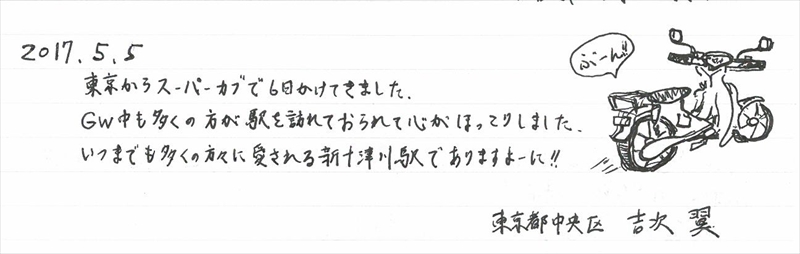 2017.5.5
東京からスーパーカブで6日かけてきました.
GW中も多くの方が駅を訪れておられて心がほっこりしました.
いつまでも多くの方々に愛される新十津川駅でありますよーに!!
ぶーん!!
東京都中央区 吉次 翼